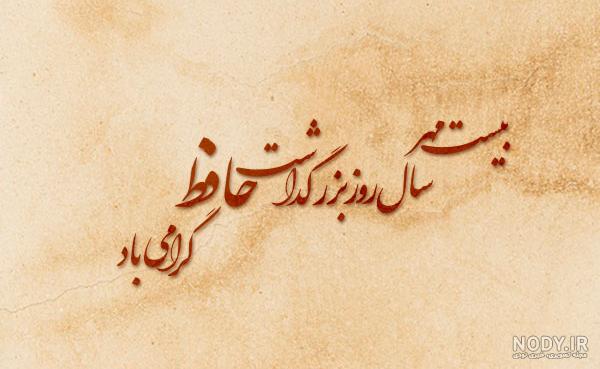 بیست مهر
سال روز بزرگداشت حافظ
گرامی باد
NODY.IR